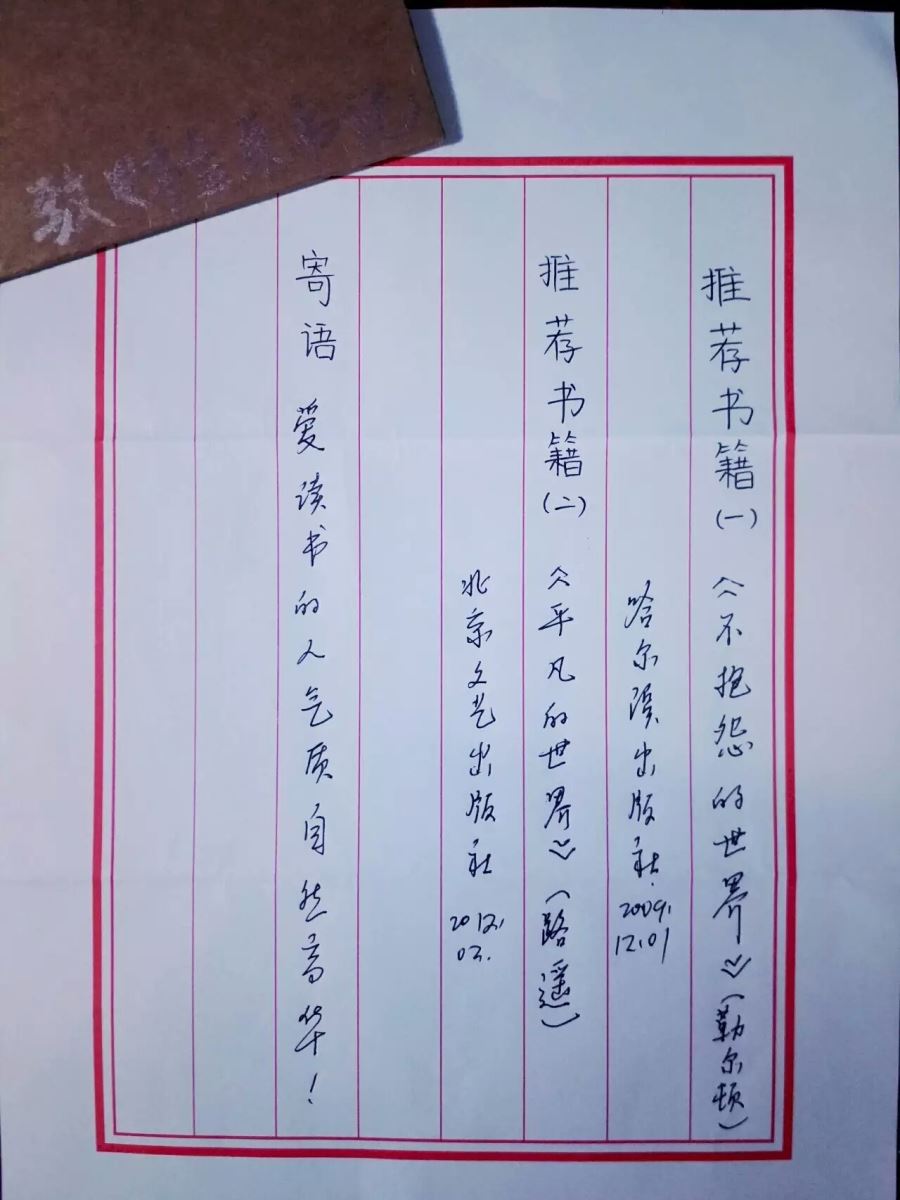 推荐书籍(一) 《不抱怨的世界》(勒尔顿)
哈尔滨出版社.2009.12.01
推荐书籍(二) 《平凡的世界》(路遥)
北京文艺出版社 2012.03.
寄语 爱读书的人气质自然高华!
敬